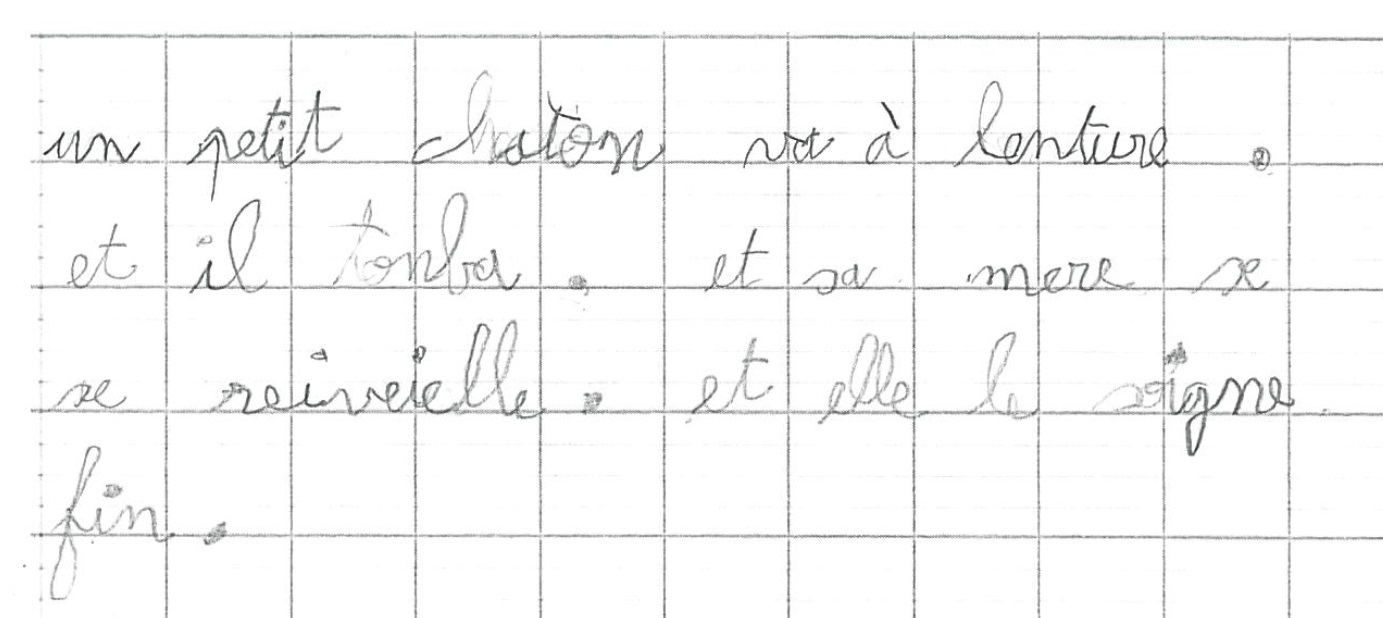 un petit chaton va à lenture.
et il tonba. et sa mere se
se reiveielle. et elle le soigne
fin.